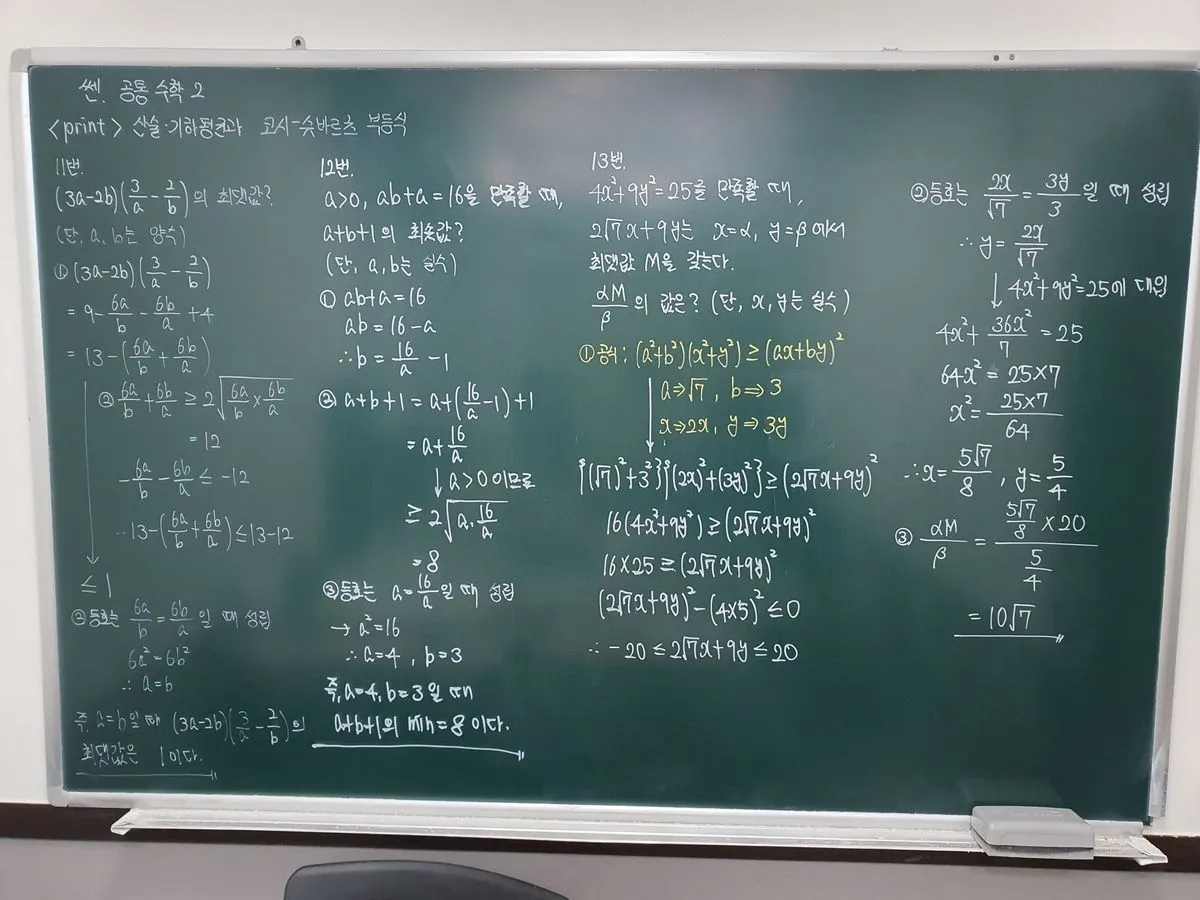 쎈. 공통 수학 2
<print> 산술·기하평균과 코시-슈바르츠 부등식
11번.
(3a-2b)(3/a - 2/b)의 최댓값?
(단, a, b는 양수)
① (3a-2b)(3/a - 2/b)
= 9 - 6a/b - 6b/a + 4
= 13 - (6a/b + 6b/a)
② 6a/b + 6b/a ≥ 2√(6a/b × 6b/a)
= 12
-6a/b - 6b/a ≤ -12
∴ 13 - (6a/b + 6b/a) ≤ 13-12
≤ 1
② 등호는 6a/b = 6b/a 일 때 성립
6a² = 6b²
∴ a=b
즉, a=b일 때 (3a-2b)(3/a - 2/b)의
최댓값은 1이다.
12번.
a>0, ab+a=16을 만족할 때,
a+b+1의 최솟값?
(단, a, b는 실수)
① ab+a=16
ab=16-a
∴ b = 16/a - 1
② a+b+1 = a+(16/a - 1)+1
= a + 16/a
↓ a>0이므로
≥ 2√(a·16/a)
= 8
③ 등호는 a = 16/a 일 때 성립
→ a² = 16
∴ a=4, b=3
즉, a=4, b=3일 때
a+b+1의 min=8이다.
13번.
4x²+9y²=25를 만족할 때,
2√7x+9y는 x=α, y=β에서
최댓값 M을 갖는다.
αM/β의 값은? (단, x, y는 실수)
① 공식: (a²+b²)(x²+y²) ≥ (ax+by)²
↓ a⇒√7, b⇒3
x⇒2x, y⇒3y
{(√7)²+3²}{(2x)²+(3y)²} ≥ (2√7x+9y)²
16(4x²+9y²) ≥ (2√7x+9y)²
16×25 ≥ (2√7x+9y)²
(2√7x+9y)² - (4×5)² ≤ 0
∴ -20 ≤ 2√7x+9y ≤ 20
② 등호는 2x/√7 = 3y/3 일 때 성립
∴ y = 2x/√7
↓ 4x²+9y²=25에 대입
4x² + 36x²/7 = 25
64x² = 25×7
x² = 25×7/64
∴ x = 5√7/8, y = 5/4
③ αM/β = (5√7/8 × 20)/(5/4)
= 10√7